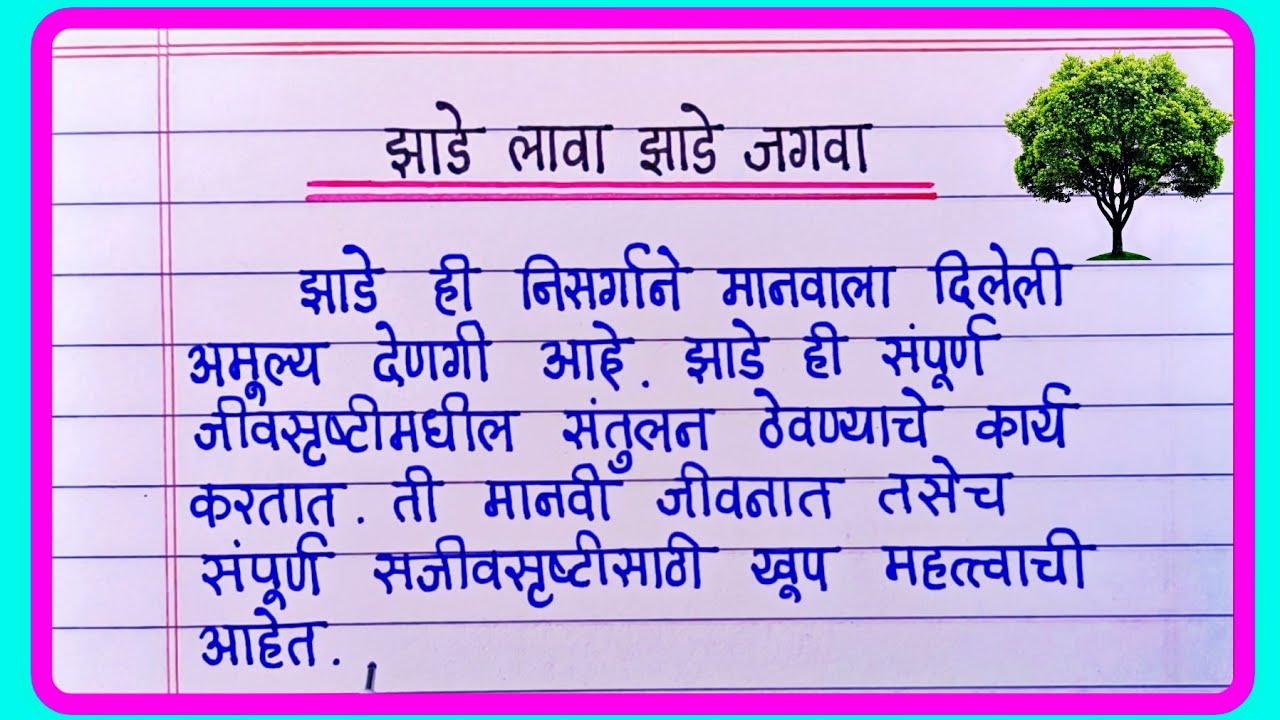 झाडे लावा झाडे जगवा
झाडे ही निसर्गाने मानवाला दिलेली
अमूल्य देणगी आहे. झाडे ही संपूर्ण
जीवसृष्टीमधील संतुलन ठेवण्याचे कार्य
करतात. ती मानवी जीवनात तसेच
संपूर्ण सजीवसृष्टीसाठी खूप महत्त्वाची
आहेत.